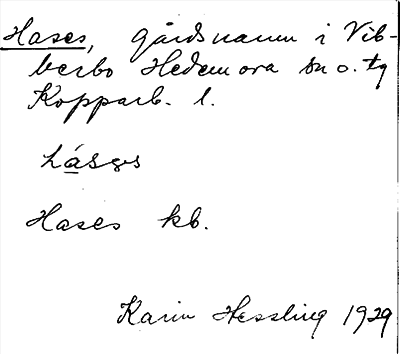 Hases, gårdsnamn i Vib-
berbo Hedemora sn o. tg
Kopparb. l.
hásəs
Hases kb.
Karin Hessling 1929